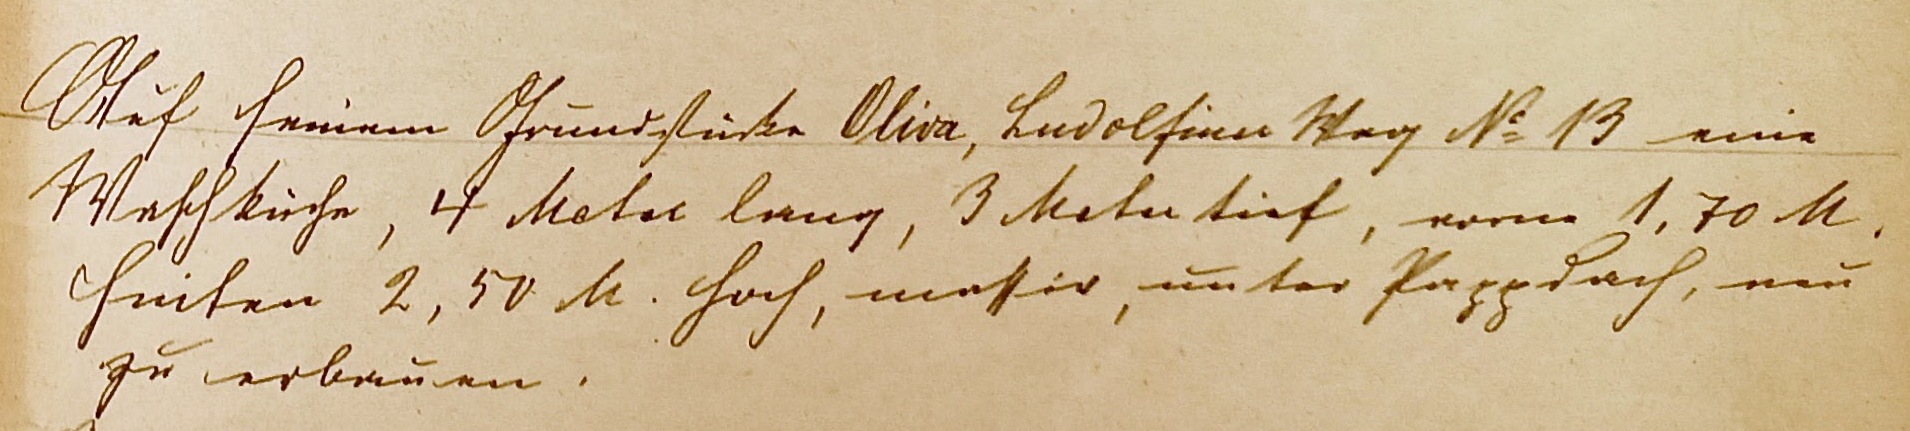 Auf seinem Grundstücke Oliva, Ludolfiner Weg No 13 eine
Waschküche, 4 Meter lang, 3 Meter tief, vorne 1,70 M.
hinten 2,50 M. hoch, massiv, unter Pappdach, neu
zu erbauen.